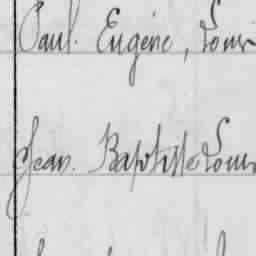 Paul. Eugène, Loui
Jean. Baptiste Loui